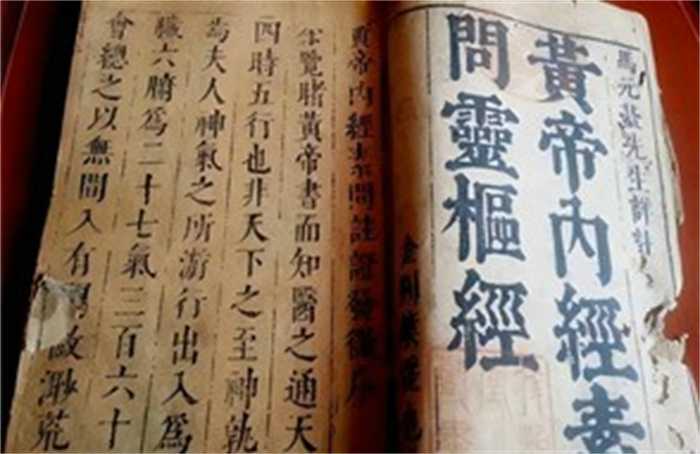 馬元臺先生評註
黃帝內經素
問靈樞經
黃帝內經素問註證發微序
余覽睹黃帝書而知醫之通天
四時五行也非天下之至神孰
為夫人神氣之所游行出入為
臟六腑為二十七氣三百六十
會總之以無間入有渺荒